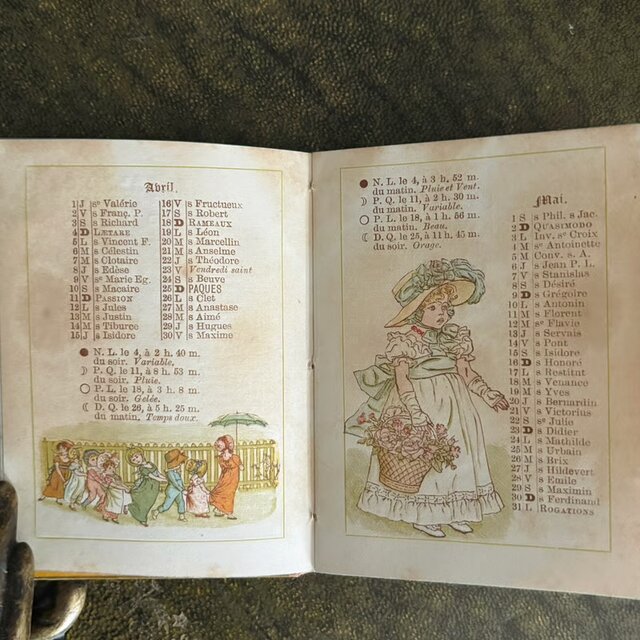 Avril.
1 J sᵗᵉ Valérie
2 V s Franç. P.
3 S s Richard
4 D LÆTARE
5 L s Vincent F.
6 M s Célestin
7 M s Clotaire
8 J s Edèse
9 V sᵗᵉ Marie Eg.
10 S s Macaire
11 D PASSION
12 L s Jules
13 M s Justin
14 M s Tiburce
15 J s Isidore
16 V s Fructueux
17 S s Robert
18 D RAMEAUX
19 L s Léon
20 M s Marcellin
21 M s Anselme
22 J s Théodore
23 V Vendredi saint
24 S s Beuve
25 D PAQUES
26 L s Clet
27 M s Anastase
28 M s Aimé
29 J s Hugues
30 V s Maxime
N. L. le 4, à 2 h. 40 m.
du soir. Variable.
P. Q. le 11, à 8 h. 53 m.
du soir. Pluie.
P. L. le 18, à 3 h. 8 m.
du soir. Gelée.
D. Q. le 26, à 5 h. 25 m.
du matin. Temps doux.
N. L. le 4, à 3 h. 52 m.
du matin. Pluie et Vent.
P. Q. le 11, à 2 h. 30 m.
du matin. Variable.
P. L. le 18, à 11 h. 56 m.
du matin. Beau.
D. Q. le 25, à 11 h. 45 m.
du soir. Orage.
Mai.
1 S s Phil. s Jac.
2 D QUASIMODO
3 L Inv. sᵗᵉ Croix
4 M sᵗᵉ Antoinette
5 M Conv. s. A.
6 J s Jean P. L.
7 V s Stanislas
8 S s Désiré
9 D s Grégoire
10 L s Antonin
11 M s Florent
12 M sᵗᵉ Flavie
13 J s Servais
14 V s Pont
15 S s Isidore
16 D s Honoré
17 L s Restitut
18 M s Venance
19 M s Yves
20 J s Bernardin
21 V s Victorius
22 S sᵗᵉ Julie
23 D s Didier
24 L s Mathilde
25 M s Urbain
26 M s Brix
27 J s Hildevert
28 V s Emile
29 S s Maximin
30 D s Ferdinand
31 L ROGATIONS